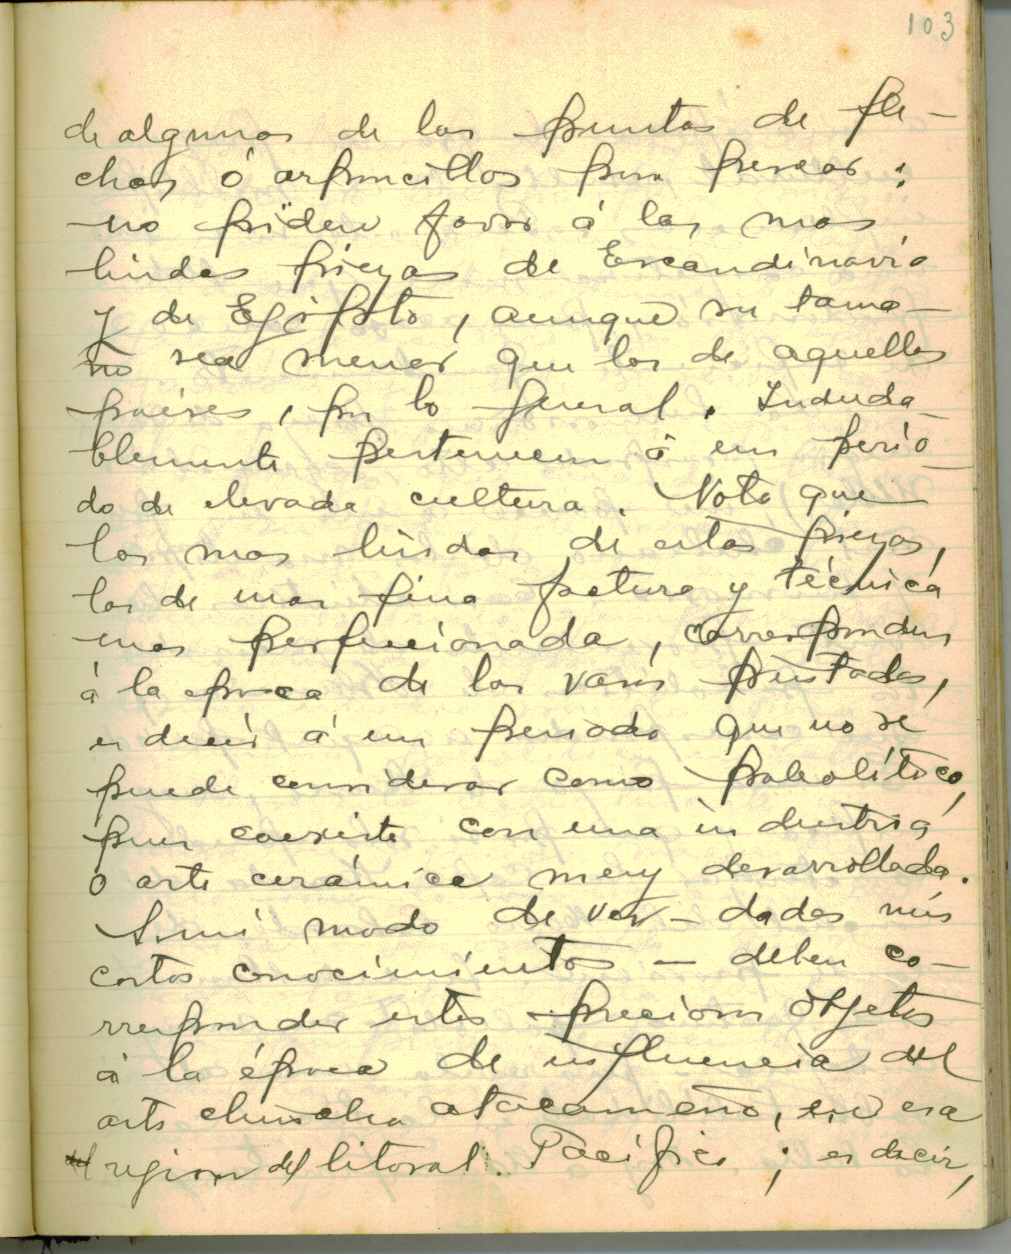 103
de algunas de las puntas de fle-
chas, ó arponcillos para pescar:
no piden favor á las mas
lindas piezas de Escandinavia
y de Egipto, aunque su tama-
ño sea menor que los de aquellos
paises, por lo general. Induda-
blemente pertenecen á un perio-
do de elevada cultura. Nota que
las mas lindas de estas piezas,
las de mas fina factura y técnica
mas perfeccionada, corresponden
á la epoca de los vasos pintados,
es decir á un periodo que no se
puede considerar como paleolítico,
pues coexiste con una industria
ó arte cerámica muy desarrollada.
A mi modo de ver - dados mis
cortos conocimientos - deben co-
rresponder estos preciosos objetos
á la época de influencia del
arte chincha atacameño, en esa
region del litoral Pacífico; es decir,